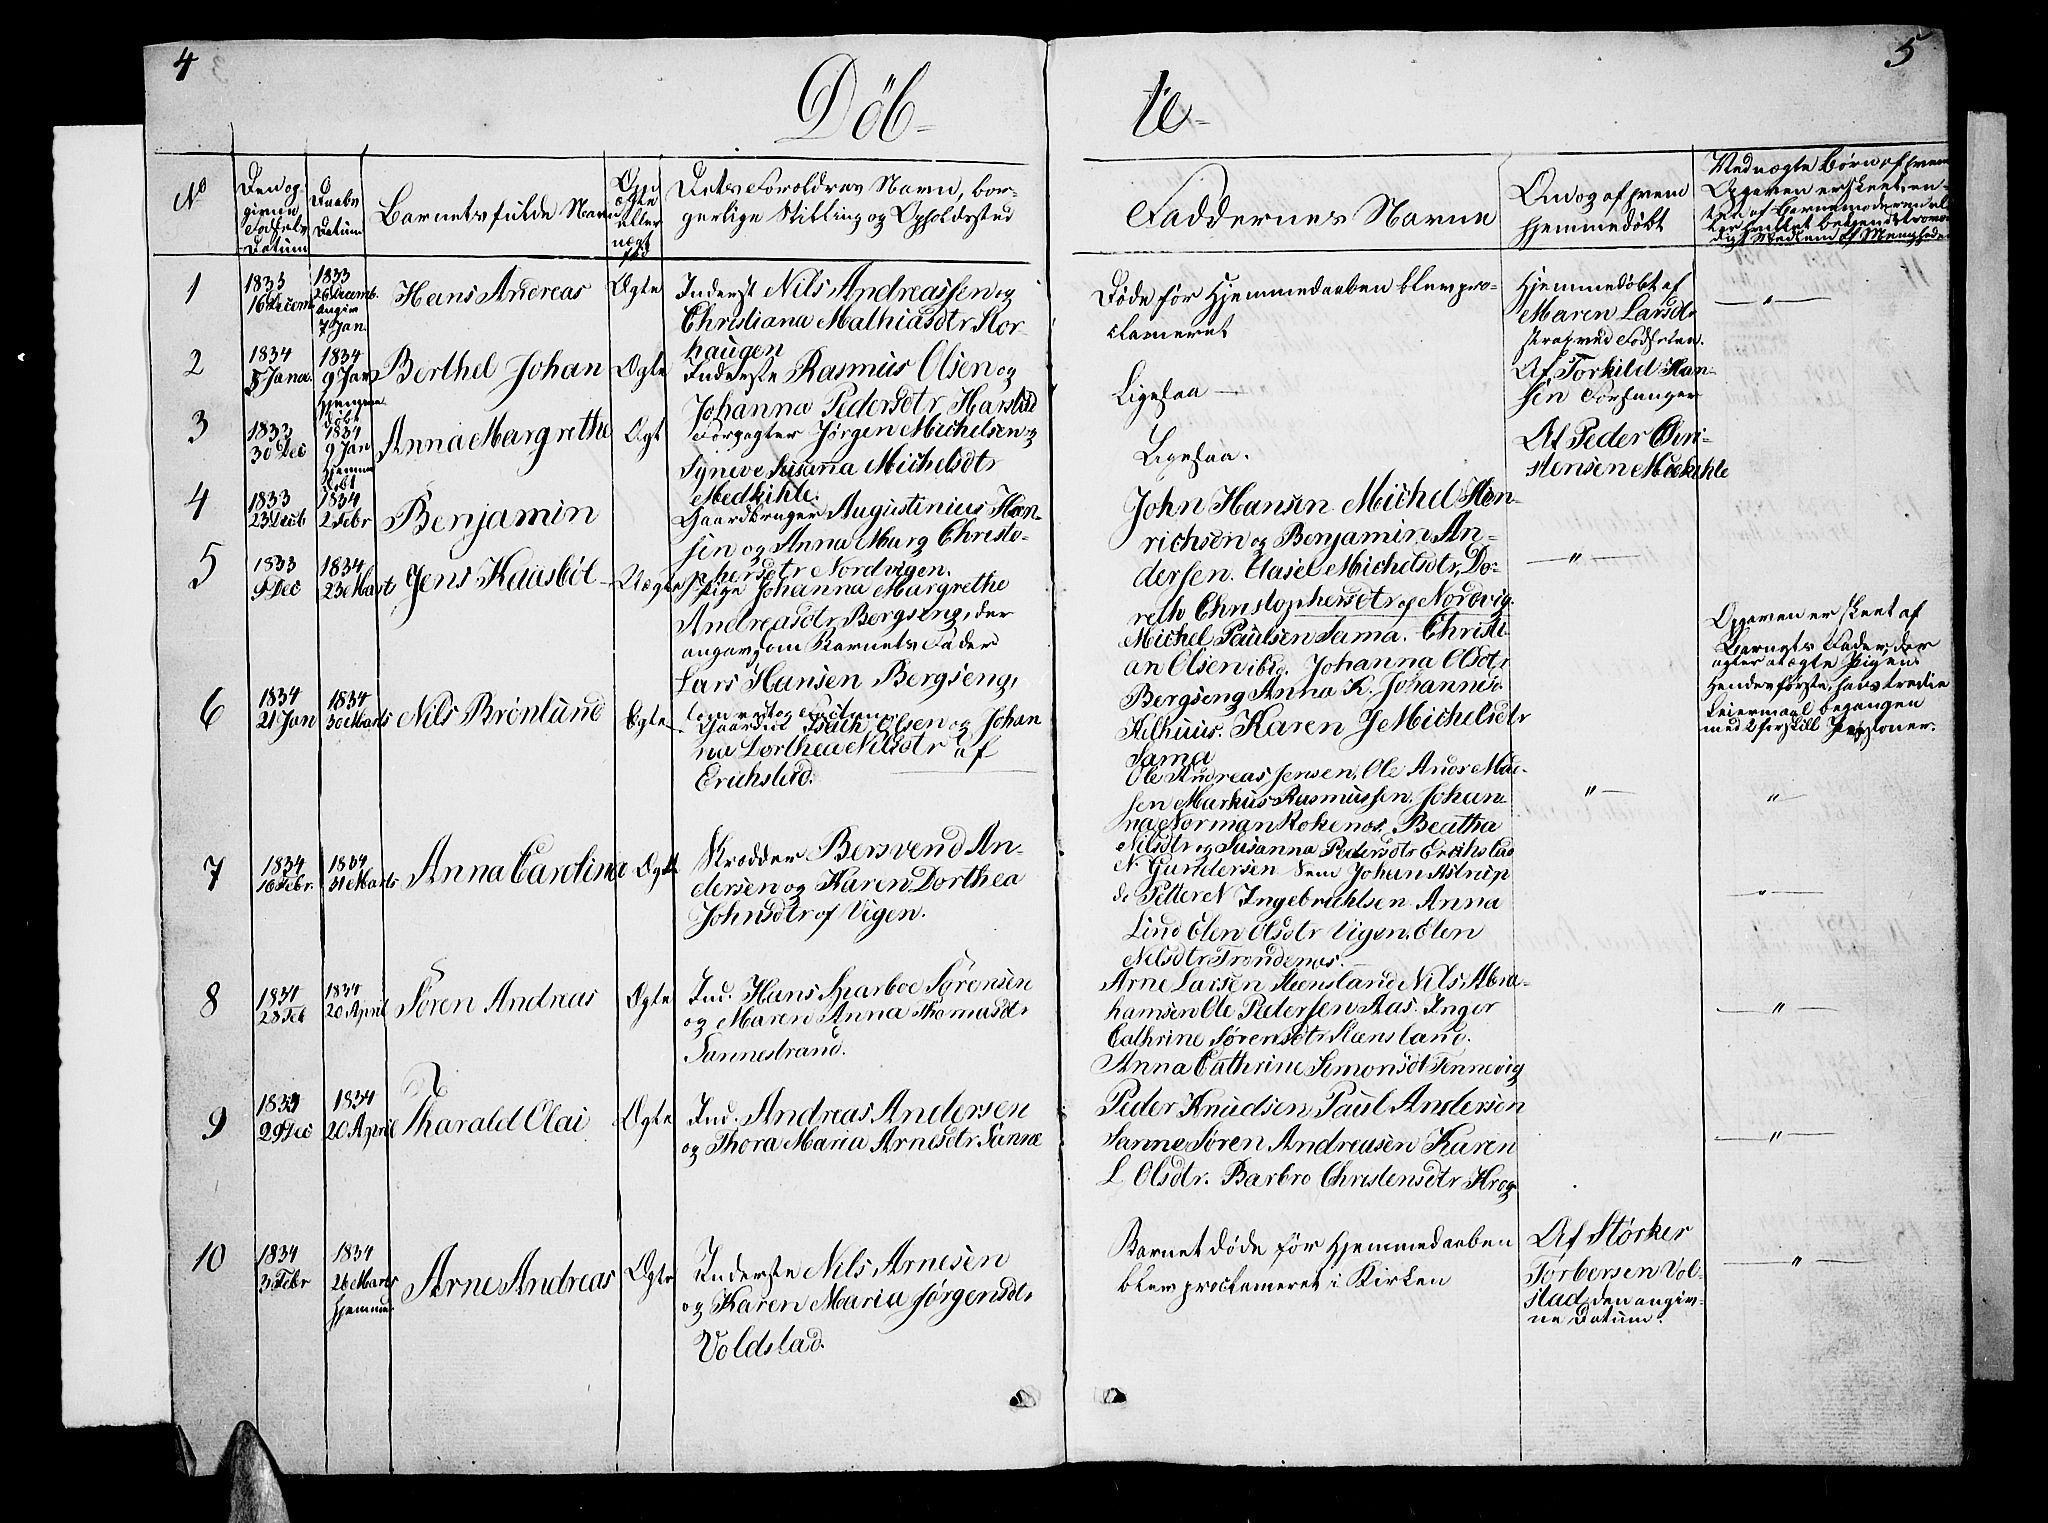 4
5
Döb-
te-
No
Den op-
givne
Fødsels
Datum
Daabs
Datum
Barnets fulde Navn
Om
ægte
eller
uægte
Dets Forældres Navn, bor-
gerlige Stilling og Opholdssted
Faddernes Navne
Om og af hvem
hjemmedøbt
Ved uægte Børn af hvem
Opgaven er skeet, en-
1
1833
16 Decem
1833
26 Decemb.
angiv
7 Jan.
Hans Andreas
Ægte
Inderst Nils Andreassen og
Christiana Mathiasdtr Stor-
haugen
Døde før Hjemmedaaben blev pro-
clameret
Hjemmedøbt af
Maren Larsdr
strax ved Fødselen.
2
1834
5 Janu.
1834
9 Jan
Hjemme
døbt
Berthel Johan
Ægte
Inderste Rasmus Olsen og
Johanna Pedersdtr Harstad
Ligesaa
Af Torkild Han-
sen Forsanger
3
1833
30 Dec
1834
9 Jan
Hjemme
døbt
Anna Margrethe
Ægt
Forpagter Jørgen Michelsen og
Syneve Susanna Michelsdtr
Medkihle.
Ligesaa.
Af Peder Chri-
stensen Medkihle
4
1833
23 Decb
1834
2 Febr
Benjamin
Gaardbruger Augustinius Han-
sen og Anna Marg Christo-
phersdtr Nordvigen.
John Hansen Michel Hen-
richsen og Benjamin An-
dersen. Hasel Michelsdtr, Do-
reth Christophersdtr af Nordvig.
5
1833
9 Dec
1834
23 Marts
Jens Kaasböl
Uægte
Pige Johanna Margrethe
Andreasdtr Bergseng, der
angav som Barnets Fader
Lars Hansen Bergseng,
Michel Paulsen Sama. Christi-
an Olsen ibid. Johanna Olsdtr
Bergseng Anna K. Johannisd.
Kelhuus. Karen J Michelsdtr
Sama
"
Opgaven er skeet af
Barnets Fader, der
agter at ægte Pigen.
Hendes første, hans tredie
Leiermaal begangen
med 2 forskiell Personer.
6
1834
21 Jan
1834
30 Marts
Nils Brönlund
Ægte
Gaardmd Isach Olsen og Johan
na Dorthea Nilsdtr af
Erichstad.
Ole Andreas Jensen, Ole Anders Mar-
sen Markus Rasmussen, Johan-
na Norman Rokenæs, Beatha
Nilsdtr og Susanna Pedersdtr Erichstad
"
"
7
1834
16 Febr.
1834
31 Marts
Anna Carolina
Ægte
Skrædder Bersvend An-
dersen og Karen Dorthea
Johnsdtr af Vigen.
N Gundersen Sem Johan Astrup
do Petter N Ingebrichtsen Anna
Lind Elen Olsdtr Vigen. Elen
Nilsdtr Trondenæs.
"
8
1834
28 Feb
1834
20 April
Søren Andreas
Ægte
Ind. Hans Hjarboe Sørensen
og Maren Anna Thomasdtr
Sannestrand.
Arne Larsen Steensland Nils Abra-
hamsen Ole Pedersen Aas. Inger
Cathrine Sørensdtr Steensland.
Anna Cathrine Semonsdt Tennevig
"
9
1833
29 Dec
1834
20 April
Tharald Olai
Ægte
Ind. Andreas Andersen
og Thora Maria Arnesdtr Sanne
Peder Knudsen, Paul Andersen
Sanne Søren Andreasen Karen
L Olsdtr. Barbro Christensdtr Krog
"
10
1834
3 Febr
1834
26 Marts
Hjemme
Arne Andreas
Ægte
Inderste Nils Arnesen
og Karen Maria Jørgensdtr
Voldstad.
Barnet døde før Hjemmedaaben
blev proclameret i Kirken
Af Størker
Torbersen Vol-
stad den angiv-
ne Datum.
"